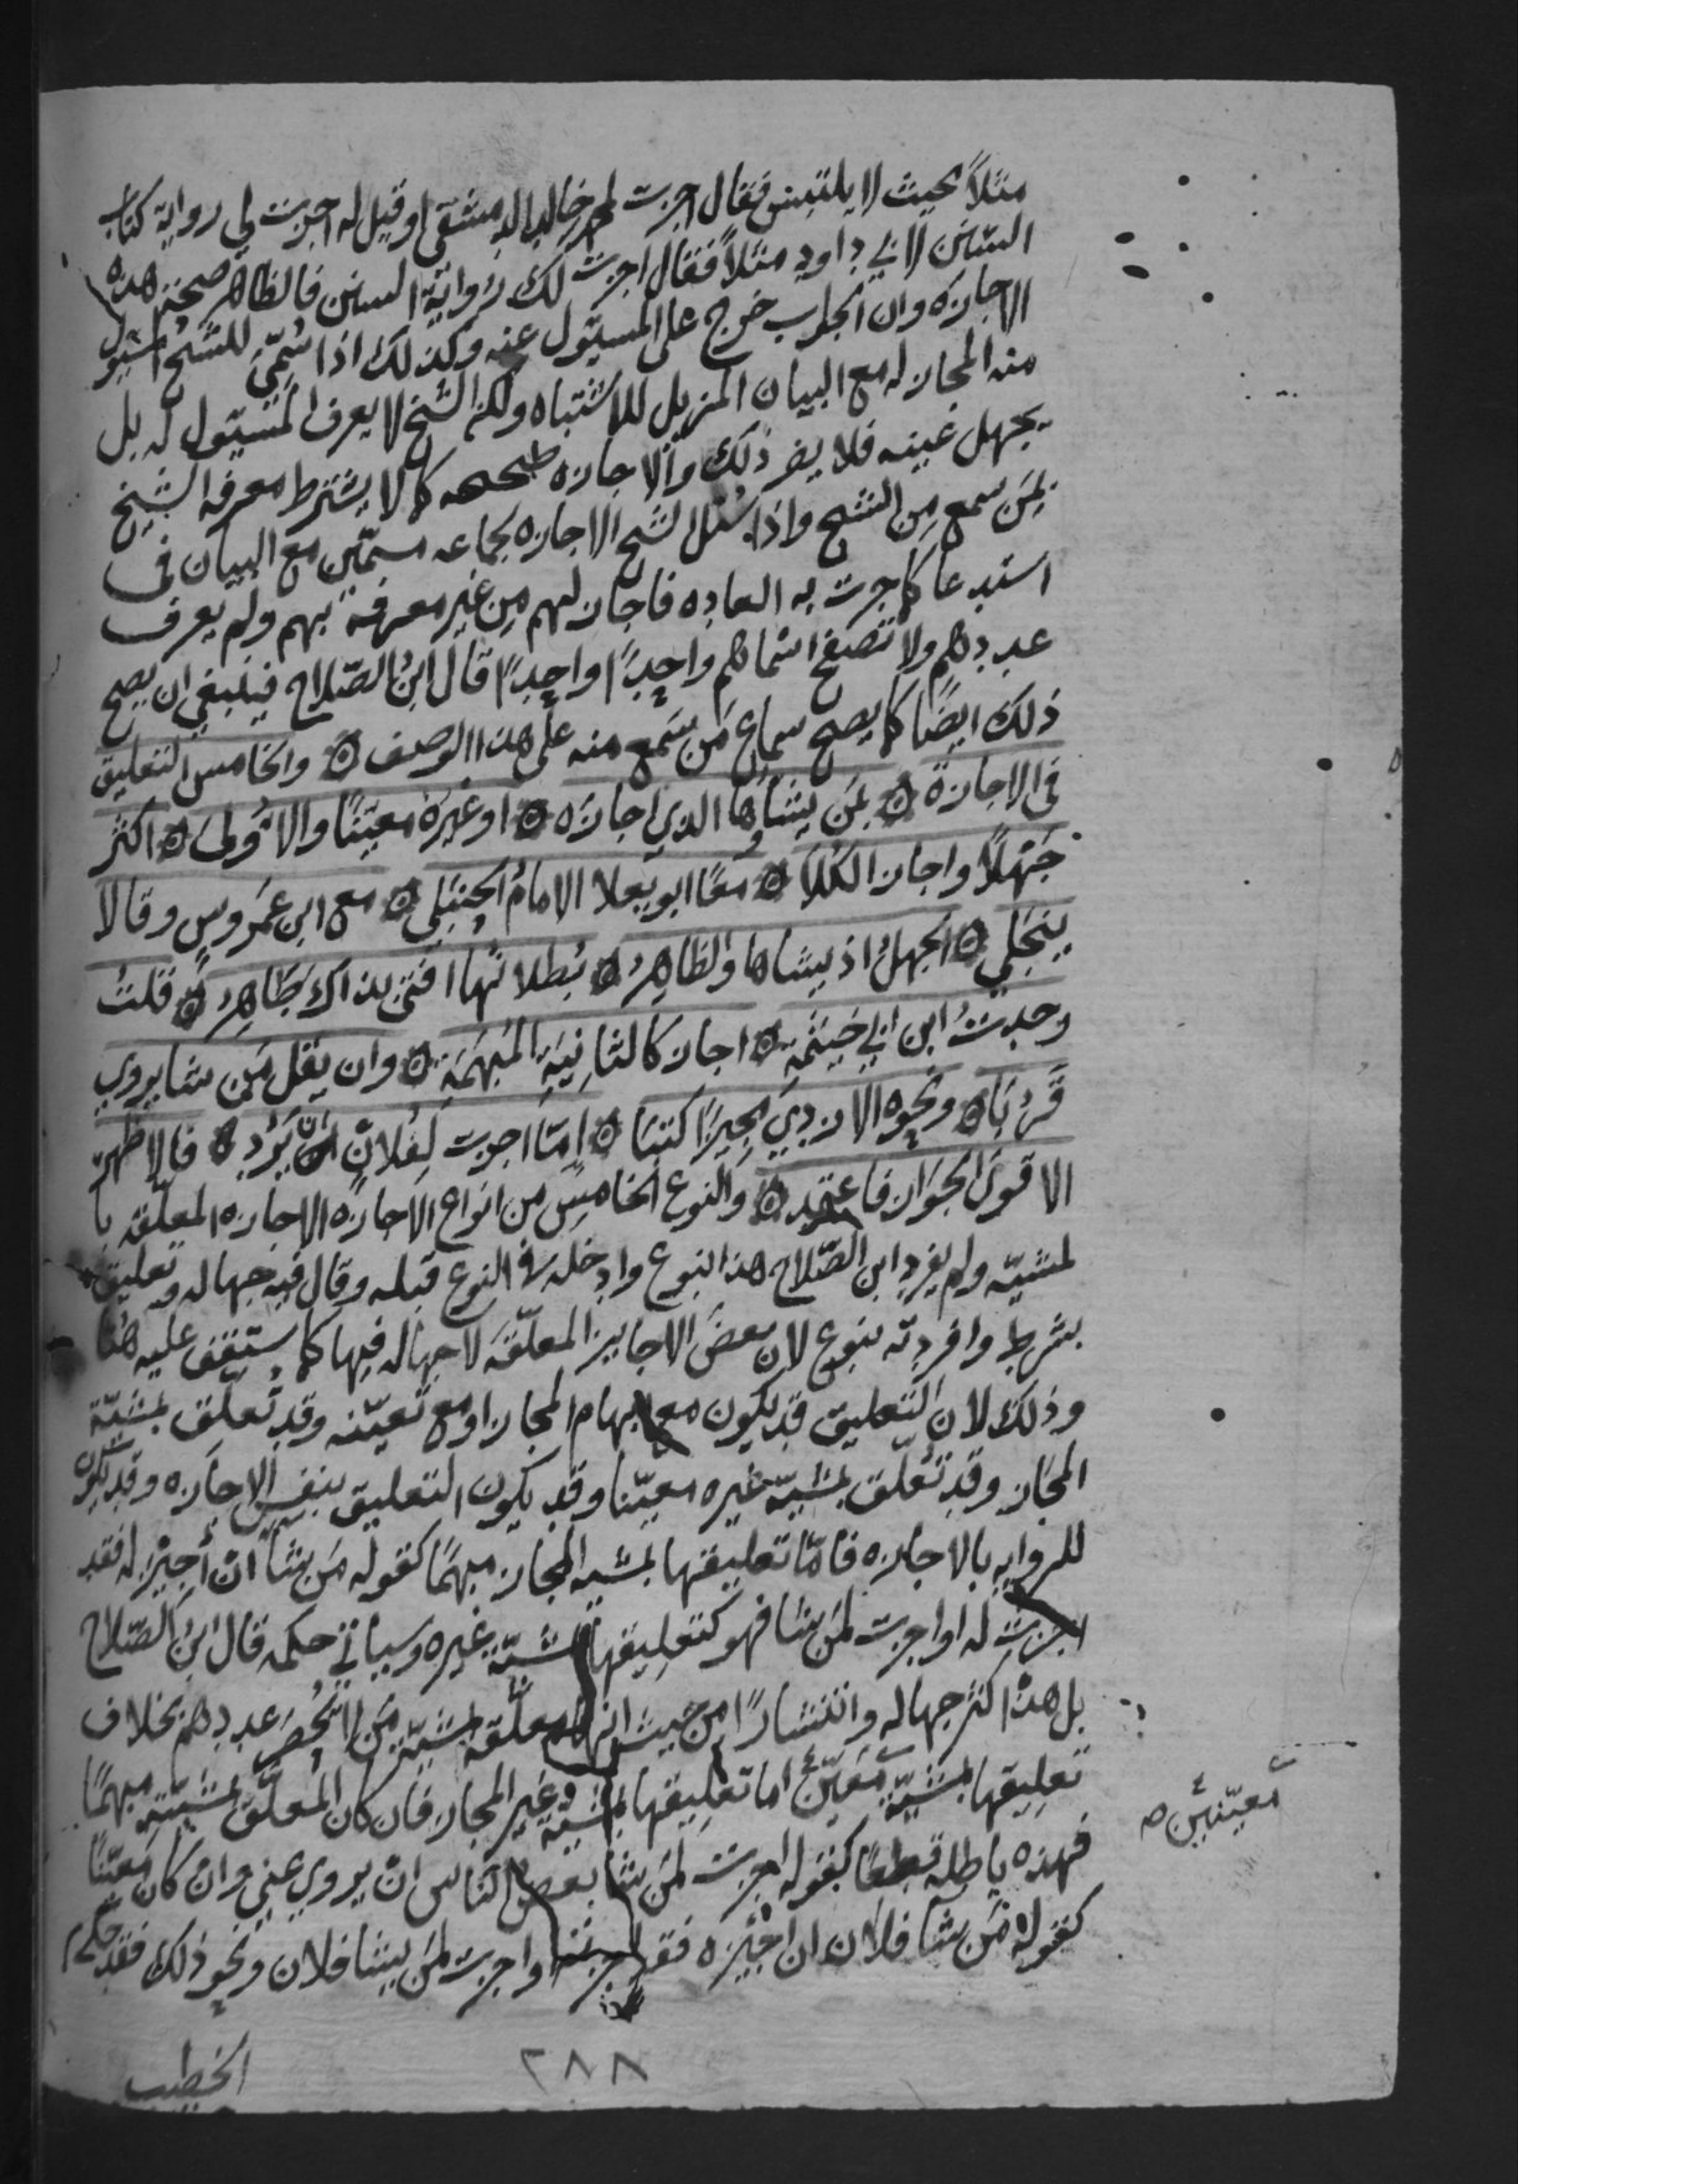 مثلاً بحيث لا يلتبس فقال اجزت لمحمد بن خالد الدمشقى او قيل له اجزت لي رواية كتاب
السنن لابي داود مثلاً فقال اجزت لك رواية السنن فالظاهر صحة هذه
الاجازه وان الجواب خرج على المسئول عنه وكذلك اذا سُمّي للشيخ المسئول
منه المجاز له مع البيان المزيل للاشتباه ولكن الشيخ لا يعرف المسئول له بل
يجهل عينه فلا يضر ذلك والاجازه صحيحه كما لا يشترط معرفه الشيخ
بمَن سمع مِن الشيخ واذا سُئل الشيخ الاجازه لجماعه مسمّين مع البيان فى
استدعا كما جرت به العاده فاجاز لهم مِن غير معرفة بهم ولم يعرف
عددهم ولا تصفح اسماهم واحدًا واحدًا قال ابن الصّلاح فينبغي ان يصح
ذلك ايضًا كما يصح سماع مَن سَمع منه على هذا الوصف ۞ والخامس التعليق
فى الاجازة ۞ بمَن يشاؤها الذي اجازه ۞ او غيرُه معيّنًا والاُولى ۞ اكثر
جَهْلاً واجاز الكلا ۞ معًا ابو يعلا الامامُ الحنبلي ۞ مع ابن عمروس وقالا
ينجلي ۞ الجهلُ اذ يشاها والظاهرُ ۞ بُطلانُها افتى بذاك طاهرُ ۞ قلتُ
وجدتُ ابن ابي خيثمة ۞ اجاز كالثانِيَةِ المُبهَمَةِ ۞ وان يقل مَن شا يروي
قَرُبَا ۞ ونحوه الازدي مجيزًا كتبا ۞ امّا اجزت لفلانٍ ان يُرِد ۞ فالاظهرُ
الاقوى الجواز فاعتمد ۞ والنوع الخامس من انواع الاجازه الاجازه المعلّقه با
لمشيّه ولم يفرد ابن الصّلاح هذا النوع وادخله فى النوع قبله وقال فيه جهاله وتعليق
بشرط وافردته بنوع لان بعض الاجايز المعلّقه لا جهاله فيها كما ستقف عليه هُنا
وذلك لان التعليق قد يكون مع ابهام المجاز او مع تعيّنه وقد تُعلّق بمشيّة
المجاز وقد تُعلّق بمشيّة غيره معيّنا وقد يكون التعليق بنفس الاجازه وقد يكون
للروايه بالاجازه فامّا تعليقها بمشيه المجاز مبهمًا كقوله مَن شا ان أُجيز له فقد
اجزت له او اجزت لمَن شا فهو كتعليقها بمشيّة غيره وسياتي حكمه قال ابن الصّلاح
بل هذا اكثر جهاله وانتشارًا من حيث انها معلّقه بمشيّة مَن لا يُحصَر عددهم بخلاف
تعليقها بمشيّة مُعَيّن اما تعليقها بمشيّة غير المجاز فان كان المُعلّق بمشيّته مبهمًا
معيّنين صح
فهذه باطله قطعًا كقوله اجزت لمَن شا بعض الناس ان يروي عني وان كان معيّنًا
كقوله مَن شا فلان ان اجيزه فقد اجزته او اجزت لمَن يشا فلان ونحو ذلك فقد حكى
الخطيب
٢٨٨